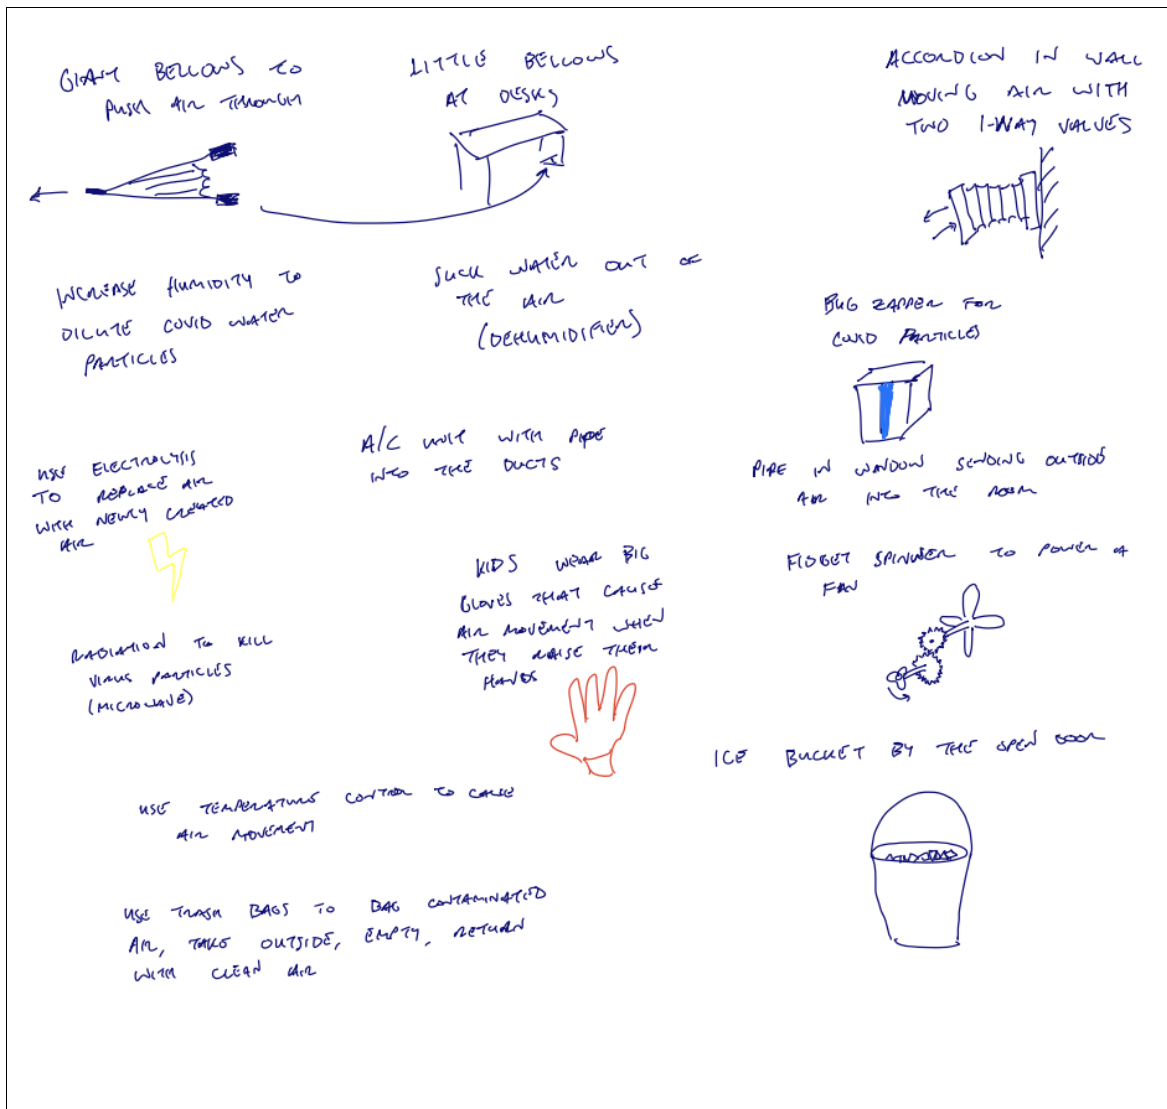 GIANT BELLOWS TO
PUSH AIR THROUGH
LITTLE BELLOWS
AT DESKS
ACCORDION IN WALL
MOVING AIR WITH
TWO 1-WAY VALVES
INCREASE HUMIDITY TO
DILUTE COVID WATER
PARTICLES
SUCK WATER OUT OF
THE AIR
(DEHUMIDIFIER)
BUG ZAPPER FOR
COVID PARTICLES
USE ELECTROLYSIS
TO REPLACE AIR
WITH NEWLY CREATED
AIR
A/C UNIT WITH PIPE
INTO THE DUCTS
PIPE IN WINDOW SENDING OUTSIDE
AIR INTO THE ROOM
KIDS WEAR BIG
GLOVES THAT CAUSE
AIR MOVEMENT WHEN
THEY RAISE THEIR
HANDS
FIDGET SPINNER TO POWER A
FAN
RADIATION TO KILL
VIRUS PARTICLES
(MICROWAVE)
ICE BUCKET BY THE OPEN DOOR
USE TEMPERATURE CONTROL TO CAUSE
AIR MOVEMENT
USE TRASH BAGS TO BAG CONTAMINATED
AIR, TAKE OUTSIDE, EMPTY, RETURN
WITH CLEAN AIR